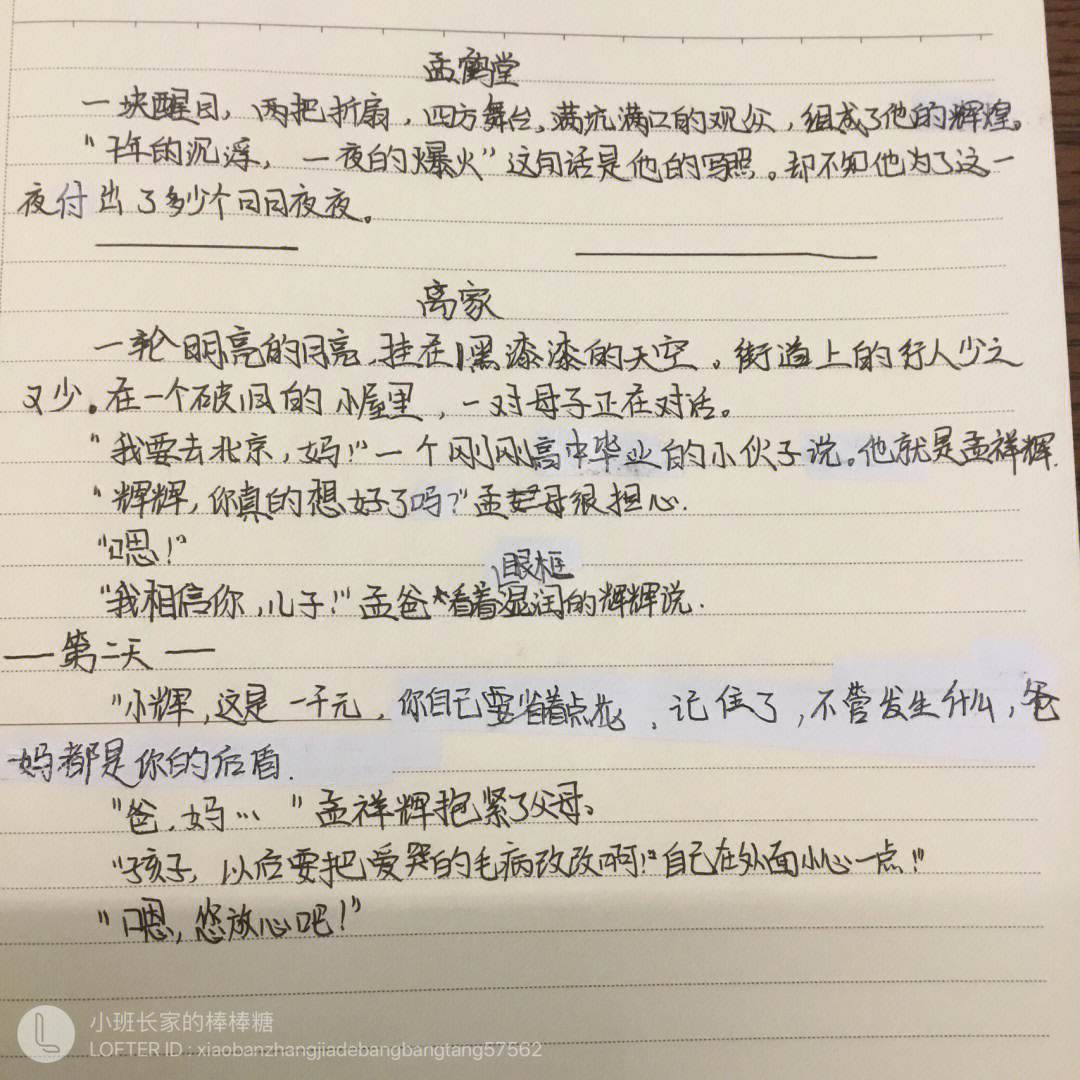 孟鹤堂
一块醒目，两把折扇，四方舞台、满坑满口的观众，组成了他的辉煌。
“千年的沉浮，一夜的爆火”这句话是他的写照。却不知他为了这一
夜付出了多少个日日夜夜。
离家
一轮明亮的月亮，挂在黑漆漆的天空。街道上的行人少之
又少。在一个破旧的小屋里，一对母子正在对话。
“我要去北京，妈！”一个刚刚高中毕业的小伙子说。他就是孟祥辉.
“辉辉，你真的想好了吗？”孟母很担心.
“嗯！”
眼框
“我相信你，儿子！”孟爸看着湿润的辉辉说.
——第二天——
“小辉，这是一千元，你自己要省着点花，记住了，不管发生什么，爸
妈都是你的后盾.
“爸，妈…”孟祥辉抱紧了父母。
“孩子，以后要把爱哭的毛病改改啊！“自己在外面小心一点！”
“嗯，您放心吧！”
小班长家的棒棒糖
LOFTER ID : xiaobanzhangjiadebangbangtang57562